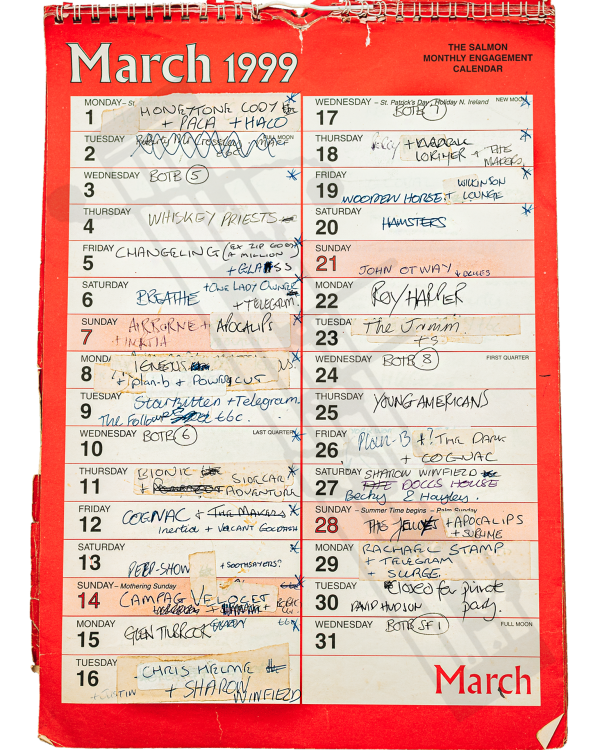 March 1999
THE SALMON
MONTHLY ENGAGEMENT
CALENDAR
MONDAY – St.
1
MONEYTONE CODY
+ PACA + HALO
TUESDAY
FULL MOON
2
WEDNESDAY
3
BOTB 5
THURSDAY
4
WHISKEY PRIESTS
FRIDAY
5
CHANGELING (EX ZIP GOOD)
A MILLION
+ GLASS
SATURDAY
6
BREATHE + ONE LADY OWNER
+ TELEGRAM.
SUNDAY
7
AIRBORNE + APOCALIPS
+ INERTIA
8
+ iplan-b + POWERCUT
TUESDAY
9
Starkitten + Telegram.
The Follow
£6c.
WEDNESDAY
LAST QUARTER
10
BOTB 6
THURSDAY
11
BIONIC
+ SIDECAR
ADVENTURE
FRIDAY
12
COGNAC + THE MAKERS
Inertia + VACANT GOLDFISH
SATURDAY
13
PEEP-SHOW
+ SOOTHSAYERS?
SUNDAY – Mothering Sunday
14
CAMPAG VELOCET
MONDAY
15
GLEN TILBROOK
TUESDAY
16
CHRIS HELME
+ SHARON
WINFIELD
WEDNESDAY – St. Patrick's Day, Holiday N. Ireland
NEW MOON
17
BOTB 7
THURSDAY
18
LORIMER + THE
MAKERS
FRIDAY
19
WOODEN HORSE + WILKINSON
LOUNGE
SATURDAY
20
HAMSTERS
SUNDAY
21
JOHN OTWAY
MONDAY
22
ROY HARPER
TUESDAY
23
The Jamm.
WEDNESDAY
FIRST QUARTER
24
BOTB 8
THURSDAY
25
YOUNG AMERICANS
FRIDAY
26
Plan-B +? THE DARK
+ COGNAC
SATURDAY
27
SHARON WINFIELD
THE DOLLS HOUSE
Becky & Hayley.
SUNDAY – Summer Time begins – Palm Sunday
28
THE + APOCALIPS
+ SUBLIME
MONDAY
29
RACHAEL STAMP
+ TELEGRAM
+ SURGE.
TUESDAY
30
Closed for private
party.
DAVID HUDSON
WEDNESDAY
FULL MOON
31
BOTB SF 1
March